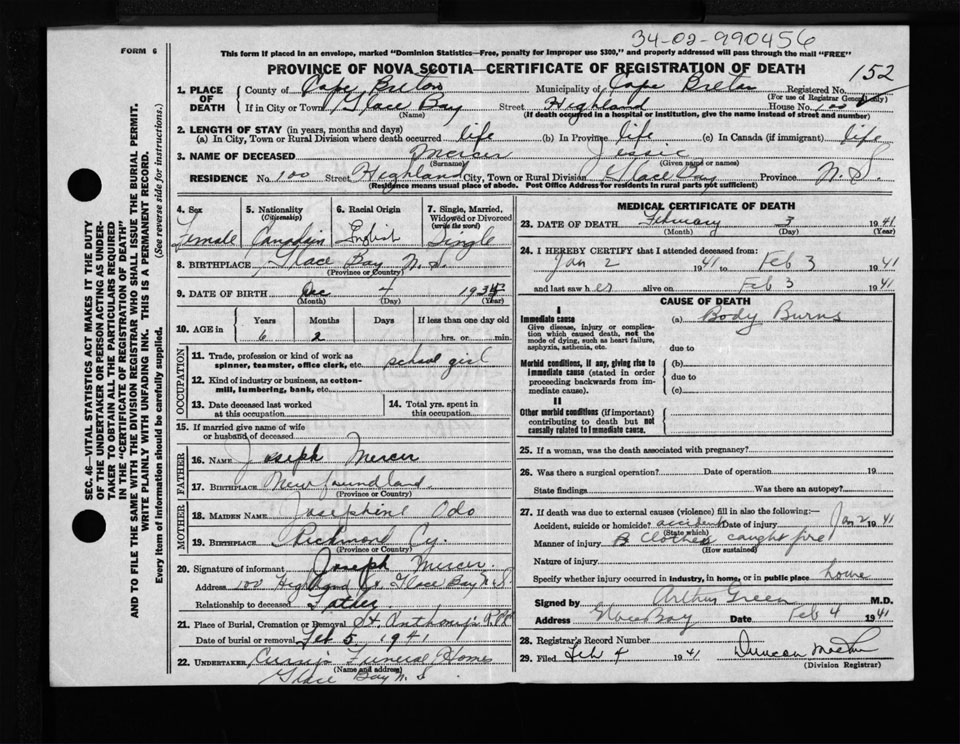 34-02-990456
FORM 6
This form if placed in an envelope, marked "Dominion Statistics—Free, penalty for improper use $300," and properly addressed will pass through the mail "FREE"
PROVINCE OF NOVA SCOTIA—CERTIFICATE OF REGISTRATION OF DEATH
152
1. PLACE OF DEATH
County of Cape Breton Municipality of Cape Breton Registered No.
(For use of Registrar General only)
If in City or Town Glace Bay Street Highland House No. 100
(Name) (If death occurred in a hospital or institution, give the name instead of street and number)
2. LENGTH OF STAY (in years, months and days)
(a) In City, Town or Rural Division where death occurred life (b) In Province life (c) In Canada (if immigrant) life
3. NAME OF DECEASED Mercer Jessie
(Surname) (Given name or names)
RESIDENCE No. 100 Street Highland City, Town or Rural Division Glace Bay Province N.S.
(Residence means usual place of abode. Post Office Address for residents in rural parts not sufficient)
4. Sex
Female
5. Nationality
(Citizenship)
Canadian
6. Racial Origin
English
7. Single, Married,
Widowed or Divorced
(write the word)
Single
8. BIRTHPLACE Glace Bay N.S.
(Province or Country)
9. DATE OF BIRTH Dec 4 193
(Month) (Day) (Year)
10. AGE in
Years Months Days If less than one day old
6 2 hrs. or min.
OCCUPATION
11. Trade, profession or kind of work as
spinner, teamster, office clerk, etc. school girl
12. Kind of industry or business, as cotton-
mill, lumbering, bank, etc.
13. Date deceased last worked
at this occupation
14. Total yrs. spent in
this occupation
15. If married give name of wife
or husband of deceased
FATHER
16. Name Joseph Mercer
17. Birthplace Newfoundland
(Province or Country)
MOTHER
18. Maiden Name Josephine Odo
19. Birthplace Richmond Cy.
(Province or Country)
20. Signature of informant Joseph Mercer
Address 100 Highland St. Glace Bay N.S.
Relationship to deceased Father
21. Place of Burial, Cremation or Removal St. Anthony's
Date of burial or removal Feb 5 1941
22. UNDERTAKER Funeral Home
(Name and address)
Glace Bay N.S.
MEDICAL CERTIFICATE OF DEATH
23. DATE OF DEATH February 3 1941
(Month) (Day) (Year)
24. I HEREBY CERTIFY that I attended deceased from:
Jan 2 1941 to Feb 3 1941
and last saw her alive on Feb 3 1941
CAUSE OF DEATH
I
Immediate cause
Give disease, injury or complica-
tion which caused death, not the
mode of dying, such as heart failure,
asphyxia, asthenia, etc.
(a) Body Burns
due to
Morbid conditions, if any, giving rise to
immediate cause (stated in order
proceeding backwards from im-
mediate cause).
(b)
due to
(c)
II
Other morbid conditions (if important)
contributing to death but not
causally related to immediate cause.
25. If a woman, was the death associated with pregnancy?
26. Was there a surgical operation? Date of operation 19
State findings Was there an autopsy?
27. If death was due to external causes (violence) fill in also the following:—
Accident, suicide or homicide? accident Date of injury Jan 2 1941
(State which)
Manner of injury Clothes caught fire
(How sustained)
Nature of injury
Specify whether injury occurred in industry, in home, or in public place home
Signed by Arthur Green M.D.
Address Glace Bay Date Feb 4 1941
28. Registrar's Record Number
29. Filed Feb 4 1941 Duncan
(Division Registrar)
SEC. 46—VITAL STATISTICS ACT MAKES IT THE DUTY
OF THE UNDERTAKER OR PERSON ACTING AS UNDER-
TAKER TO OBTAIN ALL THE PARTICULARS REQUIRED
IN THE "CERTIFICATE OF REGISTRATION OF DEATH"
AND TO FILE THE SAME WITH THE DIVISION REGISTRAR WHO SHALL ISSUE THE BURIAL PERMIT.
WRITE PLAINLY WITH UNFADING INK. THIS IS A PERMANENT RECORD.
Every item of information should be carefully supplied. (See reverse side for instructions.)